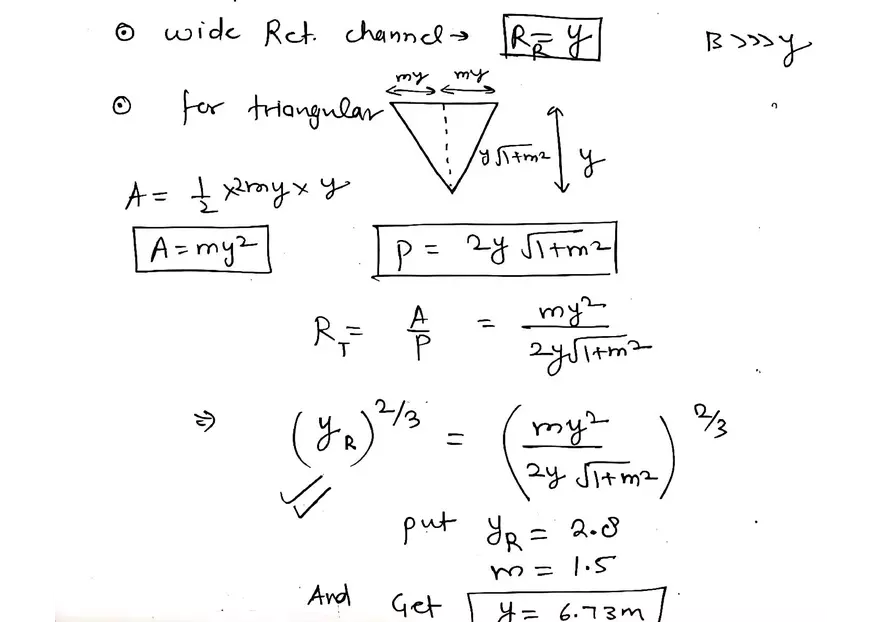 ⊙ wide Rct. channel → R_R = y B >>> y
my my
⊙ for triangular
y√1+m² y
A = 1/2 × 2my × y
A = my² P = 2y √1+m²
R_T = A/P = my²/2y√1+m²
⇒ (y_R)^2/3 = (my²/2y √1+m²)^2/3
put y_R = 2.8
m = 1.5
And Get y = 6.73m